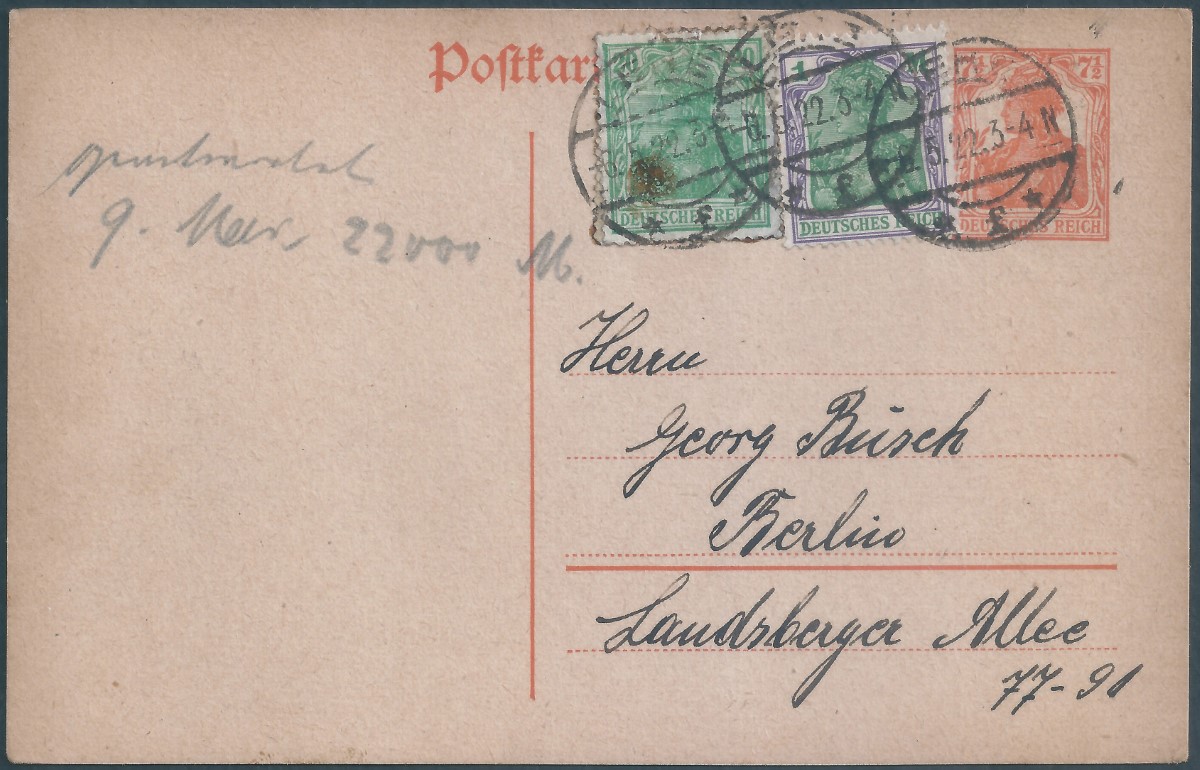 Postkar
7½
DEUTSCHES REICH
1 M
DEUTSCHES REICH
DEUTSCHES REICH
5.22.3-4 N
9. Mai, 22000 M.
Herrn
Georg Busch
Berlin
Landsberger Allee
77-91